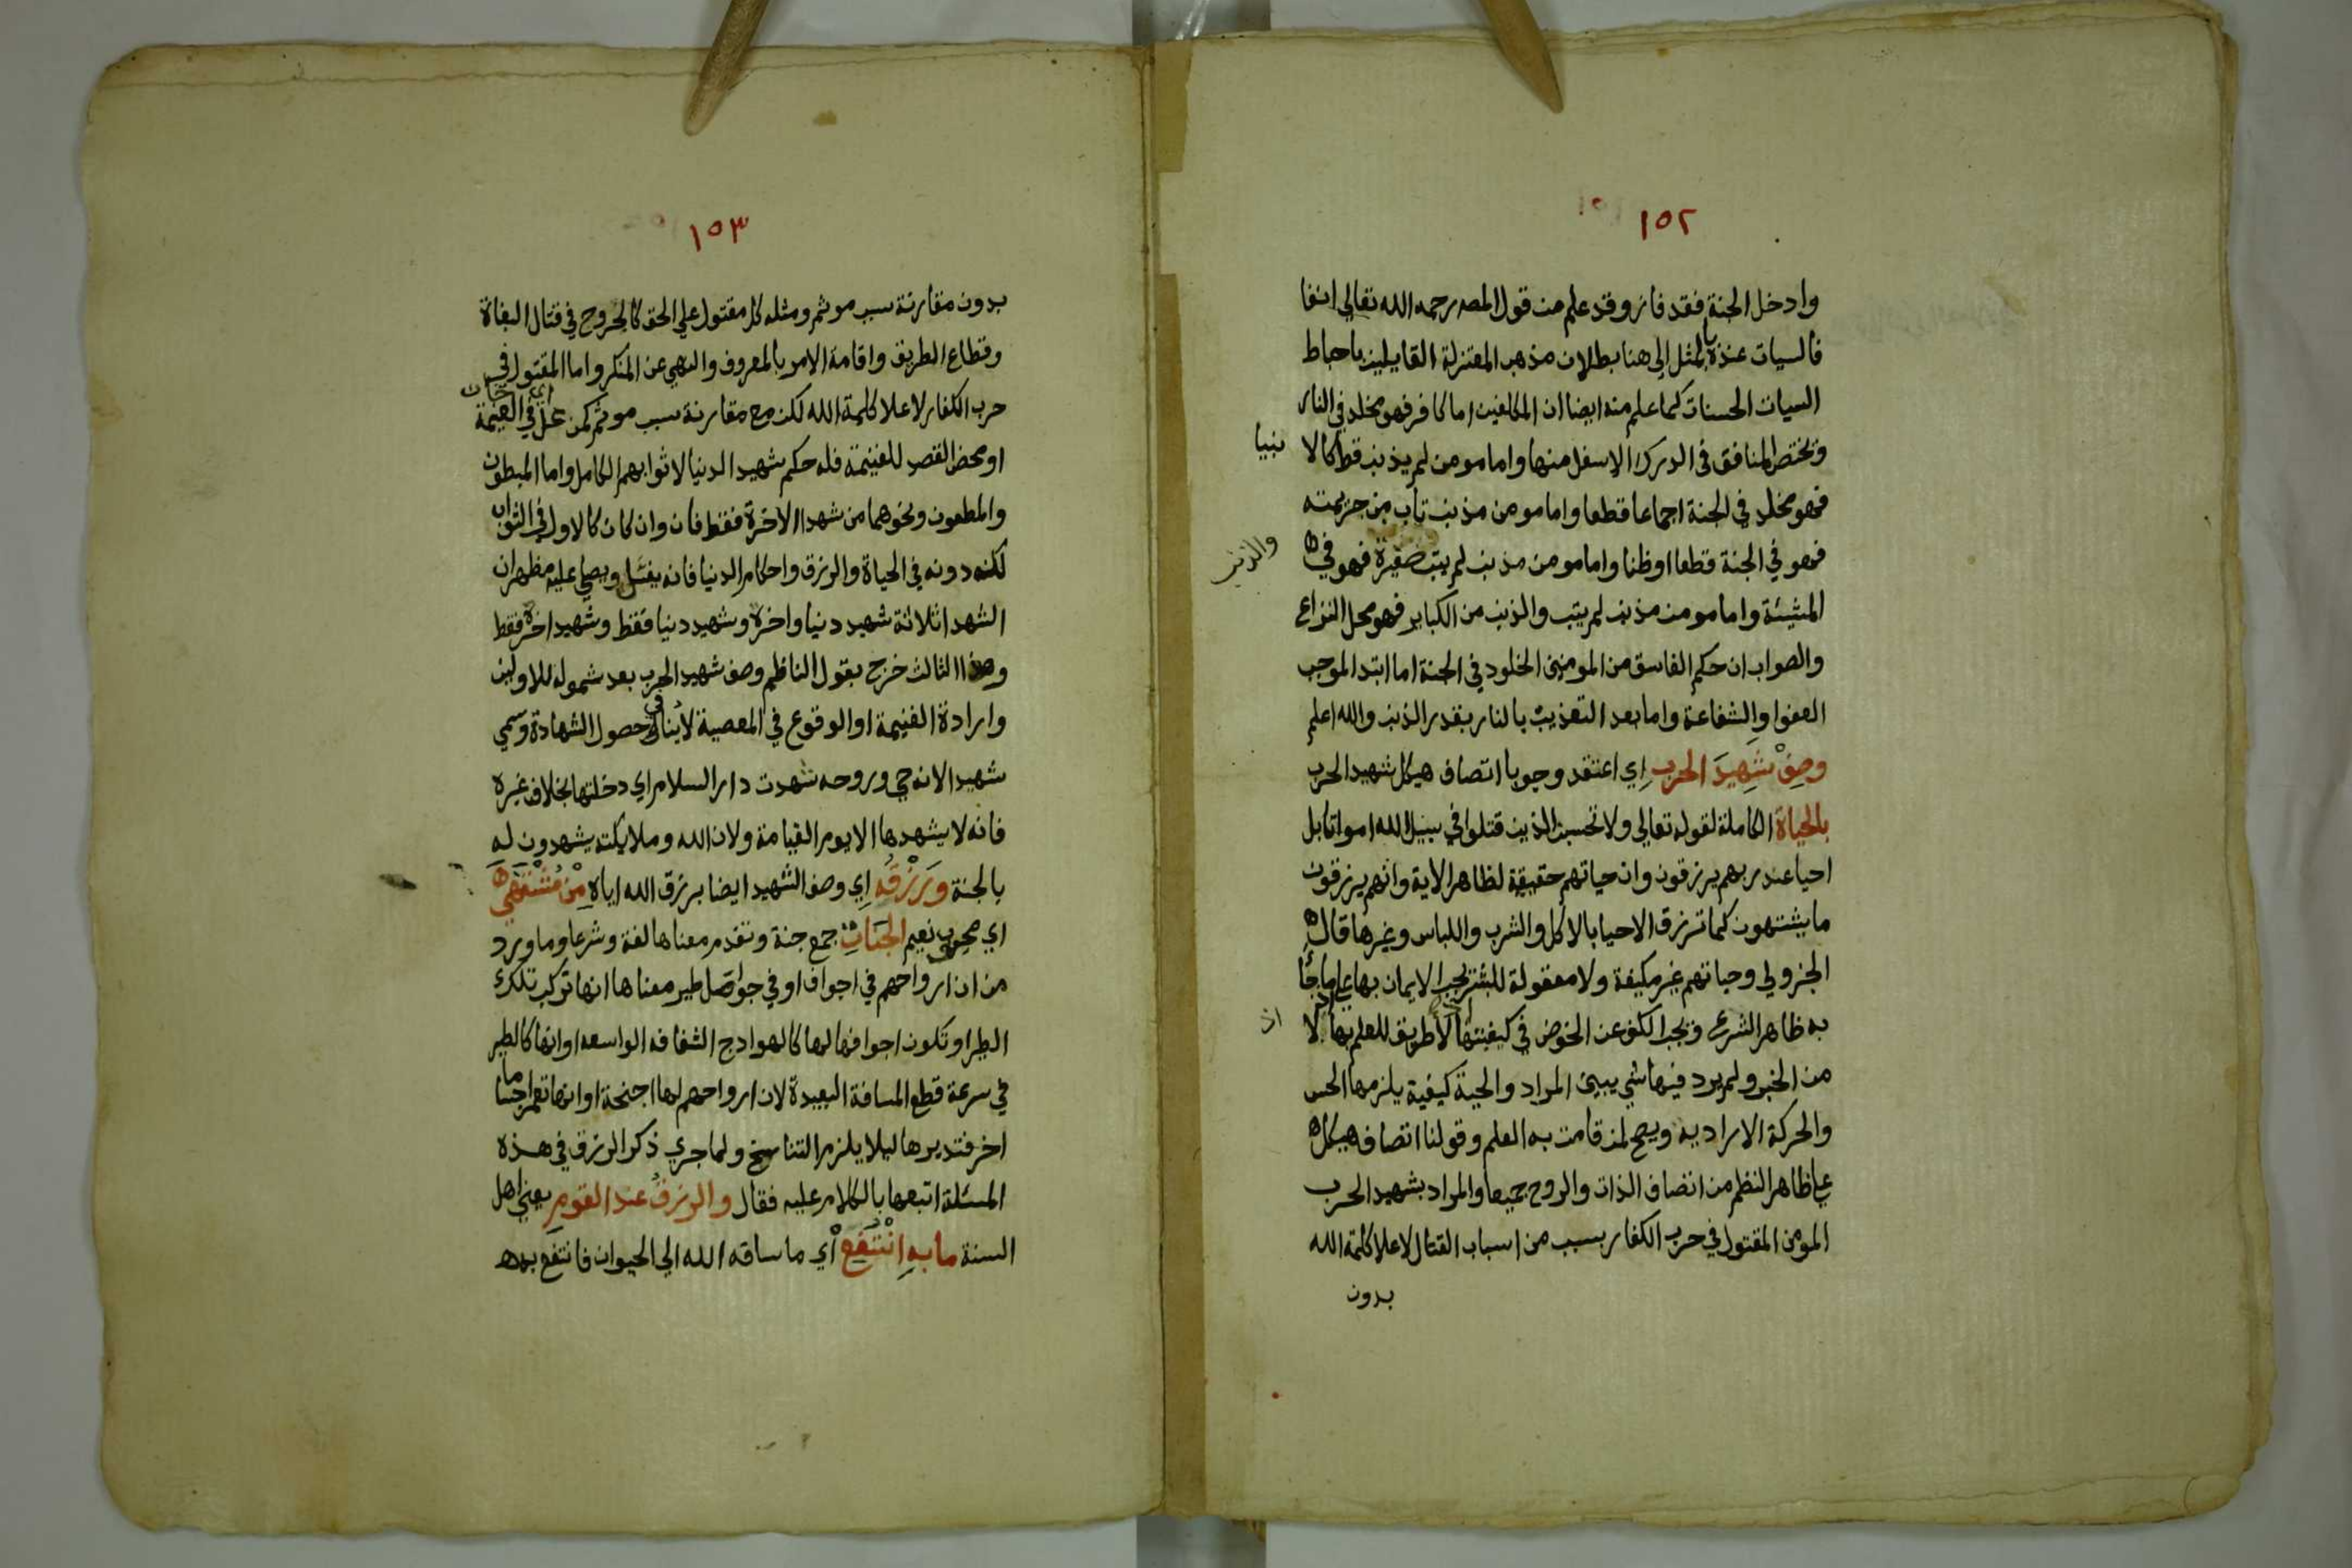 ١٥٢
وادخل الجنة فقد فاز وقد علم من قول المصـ رحمه الله تعالي انفا
فالسيات عنده بالمثل الى هنا بطلان مذهب المعتزلة القايلين باحباط
السيات الحسنات كما علم منه ايضا ان المكلفين اما كافر فهو مخلد في النار
وتختص المنافق في الدرك الاسفل منها واما مومن لم يذنب قط كالا نبيا
فهو مخلد في الجنة اجماعا قطعا واما مومن مذنب تاب من جريمته
فهو في الجنة قطعا اوظنا واما مومن مذنب لم يتب صغيرة فهو في
والذنب
المشيئة واما مومن مذنب لم يتب والذنب من الكباير فهو محل النزاع
والصواب ان حكم الفاسق من المومنين الخلود في الجنة اما ابتدا لموجب
العفوا والشفاعة واما بعد التعذيب بالنار بقدر الذنب والله اعلم
وصِفْ شَهِيدَ الحرب اي اعتقد وجوبا اتصاف هيكل شهيد الحرب
بالحياة الكاملة لقوله تعالي ولا تحسبن الذين قتلوا في سبيل الله امواتا بل
احيا عند ربهم يرزقون وان حياتهم حقيقة لظاهر الاية وانهم يرزقون
ما يشتهون كما ترزق الاحيا بالاكل والشرب واللباس وغيرها قال
الجزولي وحياتهم غير مكيفة ولا معقولة للبشر يجب الايمان بها علي ما جأ
به ظاهر الشرع ويجب الكف عن الخوض في كيفيتها اذ لا طريق للعلم بها الا
من الخبر ولم يرد فيها شي يبين المراد والحية كيفية يلزمها الحس
والحركة الارادية ويصح لمن قامت به العلم وقولنا اتصاف هيكل
علي ظاهر النظم من اتصاف الذات والروح جميعا والمراد بشهيد الحرب
المومن المقتول في حرب الكفار بسبب من اسباب القتال لاعلا كلمة الله
بدون
١٥٣
بدون مقارنة سبب موثم ومثله كل مقتول علي الحق كالجروح في قتال البغاة
وقطاع الطريق واقامة الامر بالمعروف والنهي عن المنكر واما المقتول في
حرب الكفار لاعلا كلمة الله لكن مع مقارنة سبب موثم كمن غل اي خان في الغنيمة
او محض القصد للغنيمة فله حكم شهيد الدنيا لا ثوابهم الكامل واما المبطون
والمطعون ونحوهما من شهدا الاخرة فقط فان وان كان كالاول في الثواب
لكنه دونه في الحياة والرزق واحكام الدنيا فانه يغسّل ويصلي عليه فظهر ان
الشهدا ثلاثة شهيد دنيا واخرة وشهيد دنيا فقط وشهيد اخرة فقط
وهذا الثالث خرج بقول الناظم وصف شهيد الحرب بعد شموله للاولين
وارادة الغنيمة او الوقوع في المعصية لا ينافي حصول الشهادة وسمي
شهيدا لانه حي وروحه شهدت دار السلام اي دخلتها بخلاف غيره
فانه لا يشهدها الا يوم القيامة ولان الله وملايكته يشهدون له
بالجنة وَرَزْقُه اي وصف الشهيد ايضا برزق الله اياه مِنْ مُشْتَهَى
اي محبوب نعيم الجَنَاتِ جمع جنة وتقدم معناها لغة وشرعا وما ورد
من ان ارواحهم في اجواف او في حواصل طير معناها انها تركب تلك
الطير او تكون اجوافها لها كالهوادج الشفافه الواسعه او انها كالطير
في سرعة قطع المسافة البعيدة لان ارواحهم لها اجنحة او انها تعمر اجساما
اخر فتديرها ليلا يلزم التناسخ ولما جري ذكر الرزق في هذه
المسئلة اتبعها بالكلام عليه فقال والرزقُ عند القومِ يعني اهل
السنة ما بهِ انْتُفِعْ أي ما ساقه الله الي الحيوان فانتفع به